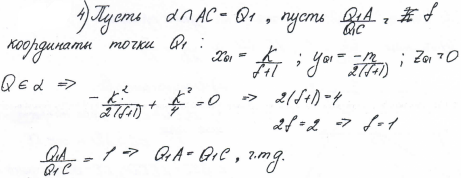 4) Пусть α ∩ AC = Q₁, пусть Q₁A/Q₁C = f
координаты точки Q₁ :
x_Q₁ = K/(f+1) ; y_Q₁ = -m/(2(f+1)) ; z_Q₁ = 0
Q ∈ α ⇒
- K²/(2(f+1)) + K²/4 = 0 ⇒ 2(f+1) = 4
2f = 2 ⇒ f = 1
Q₁A/Q₁C = 1 ⇒ Q₁A = Q₁C, ч.т.д.